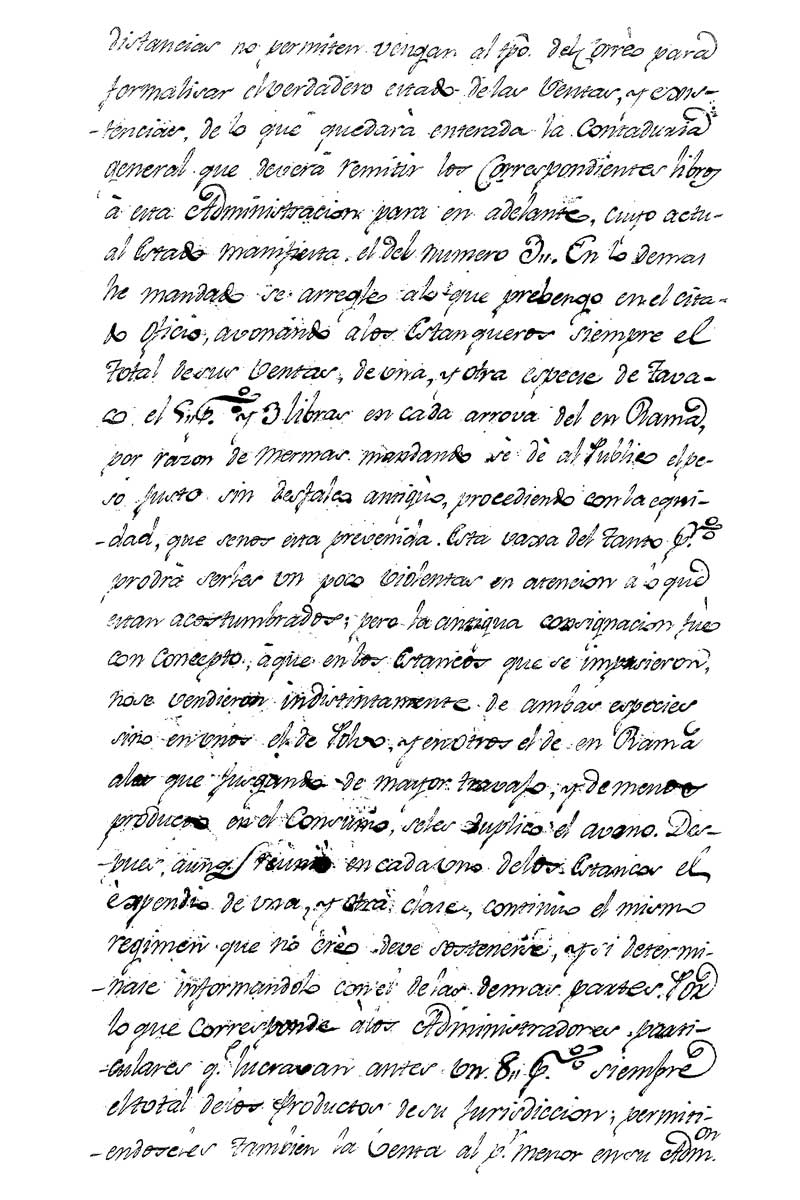 distancias no permiten vengan al tpô. del Correo para
formalisar el verdadero estado de las Ventas, y exis-
-tencias, de lo que quedarà enterada la Contaduria
general que deverà remitir los Correspondientes libros
à esta Administracion para en adelante, cuyo actu-
al Estado manifiesta el del numero 3,,. En lo demas
he mandado se arregle alo que prebengo en el cita-
do Oficio, avonando alos Estanqueros siempre el
total de sus Ventas, de una, y otra especie de Tava-
co el 5,,p.% y 3 libras en cada arrova del en Rama,
por razon de Mermas mandando se dè al Publico el pe-
so justo sin desfalco antiguo, procediendo con la equi-
-dad, que senos esta prevenida. Esta vaxa del tanto p.%
prodrà serles un poco violentas en atencion a lo que
estan acostumbrados; pero la antigua consignacion fuè
con Concepto, àque en los Estancos que se impusieron,
nose vendieron indistintamente de ambas especies
sino en unos el de Polvo, y en otros el de en Rama
ales que jusgando de mayor travajo, y de menos
producto en el Consumo, seles duplico el avono. Des-
-pues, aunq̃ se reuniò en cada uno delos Estancos el
èxpendio de una, y otra clase, continuo el mismo
regimen que no crèo deve sostenerse, y si determi-
-nase informandolo con el de las demas partes. Por
lo que corresponde àlos Administradores parti-
-culares q.e lucravan antes un 8,,p.% siempre
el total delos productos desu Jurisdiccion; permiti-
-endoseles tambien la Venta al p.r menor en su Adm.on